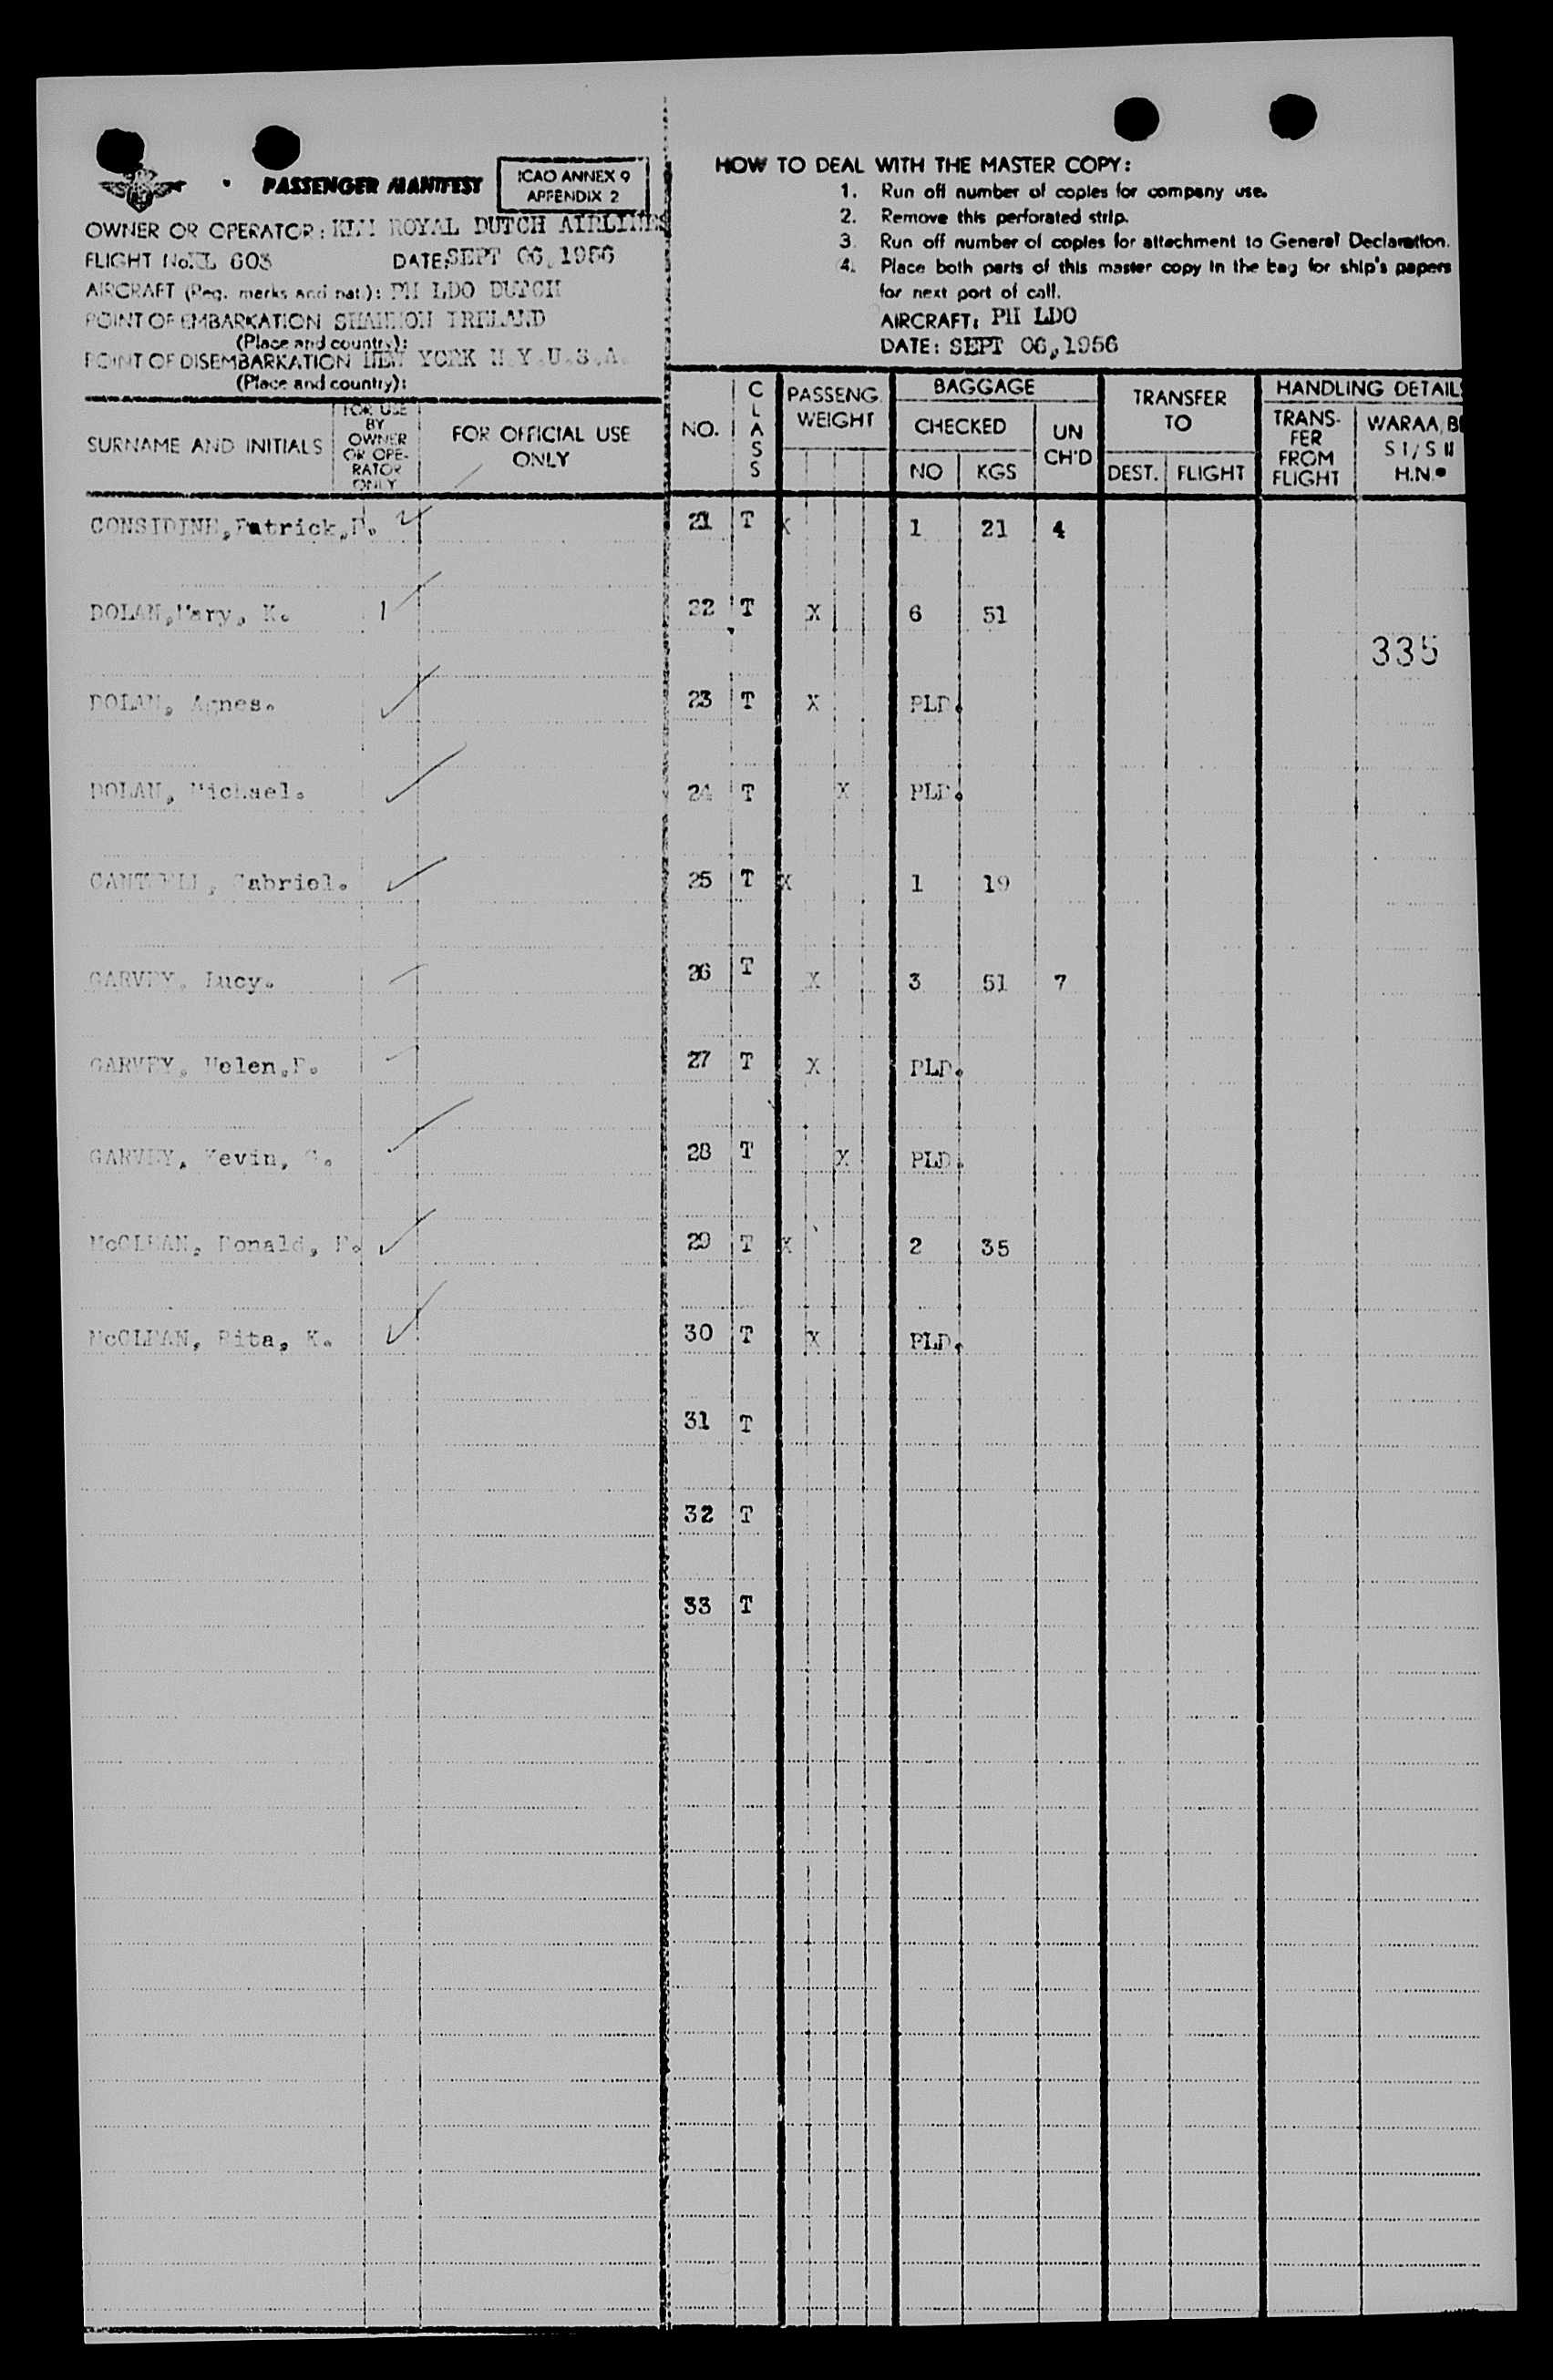 PASSENGER MANIFEST
ICAO ANNEX 9
APPENDIX 2
OWNER OR OPERATOR: KLM ROYAL DUTCH AIRLINES
FLIGHT No. KL 603 DATE: SEPT 06, 1956
AIRCRAFT (Reg. marks and nat.): PH LDO DUTCH
POINT OF EMBARKATION SHANNON IRELAND
(Place and country):
POINT OF DISEMBARKATION NEW YORK N.Y.U.S.A.
(Place and country):
HOW TO DEAL WITH THE MASTER COPY:
1. Run off number of copies for company use.
2. Remove this perforated strip.
3. Run off number of copies for attachment to General Declaration.
4. Place both parts of this master copy in the bag for ship's papers
for next port of call.
AIRCRAFT: PH LDO
DATE: SEPT 06, 1956
SURNAME AND INITIALS
FOR USE
BY
OWNER
OR OPE-
RATOR
ONLY
FOR OFFICIAL USE
ONLY
NO.
CLASS
PASSENG.
WEIGHT
BAGGAGE
CHECKED
NO KGS
UN
CH'D
TRANSFER
TO
DEST. FLIGHT
HANDLING DETAILS
TRANS-
FER
FROM
FLIGHT
WARAA, B
S I / S II
H.N.
CONSIDINE, Patrick, 21 T X 1 21 4
DOLAN, Mary, K. 1 22 T X 6 51
335
DOLAN, Agnes. 23 T X PLD.
DOLAN, Michael. 24 T X PLD.
CANTWELL, Gabriel. 25 T X 1 19
GARVEY, Lucy. 26 T X 3 51 7
GARVEY, Helen, 27 T X PLD.
GARVEY, Kevin, 28 T X PLD.
McCLEAN, Donald, 29 T X 2 35
McCLEAN, Rita, K. 30 T X PLD.
31 T
32 T
33 T